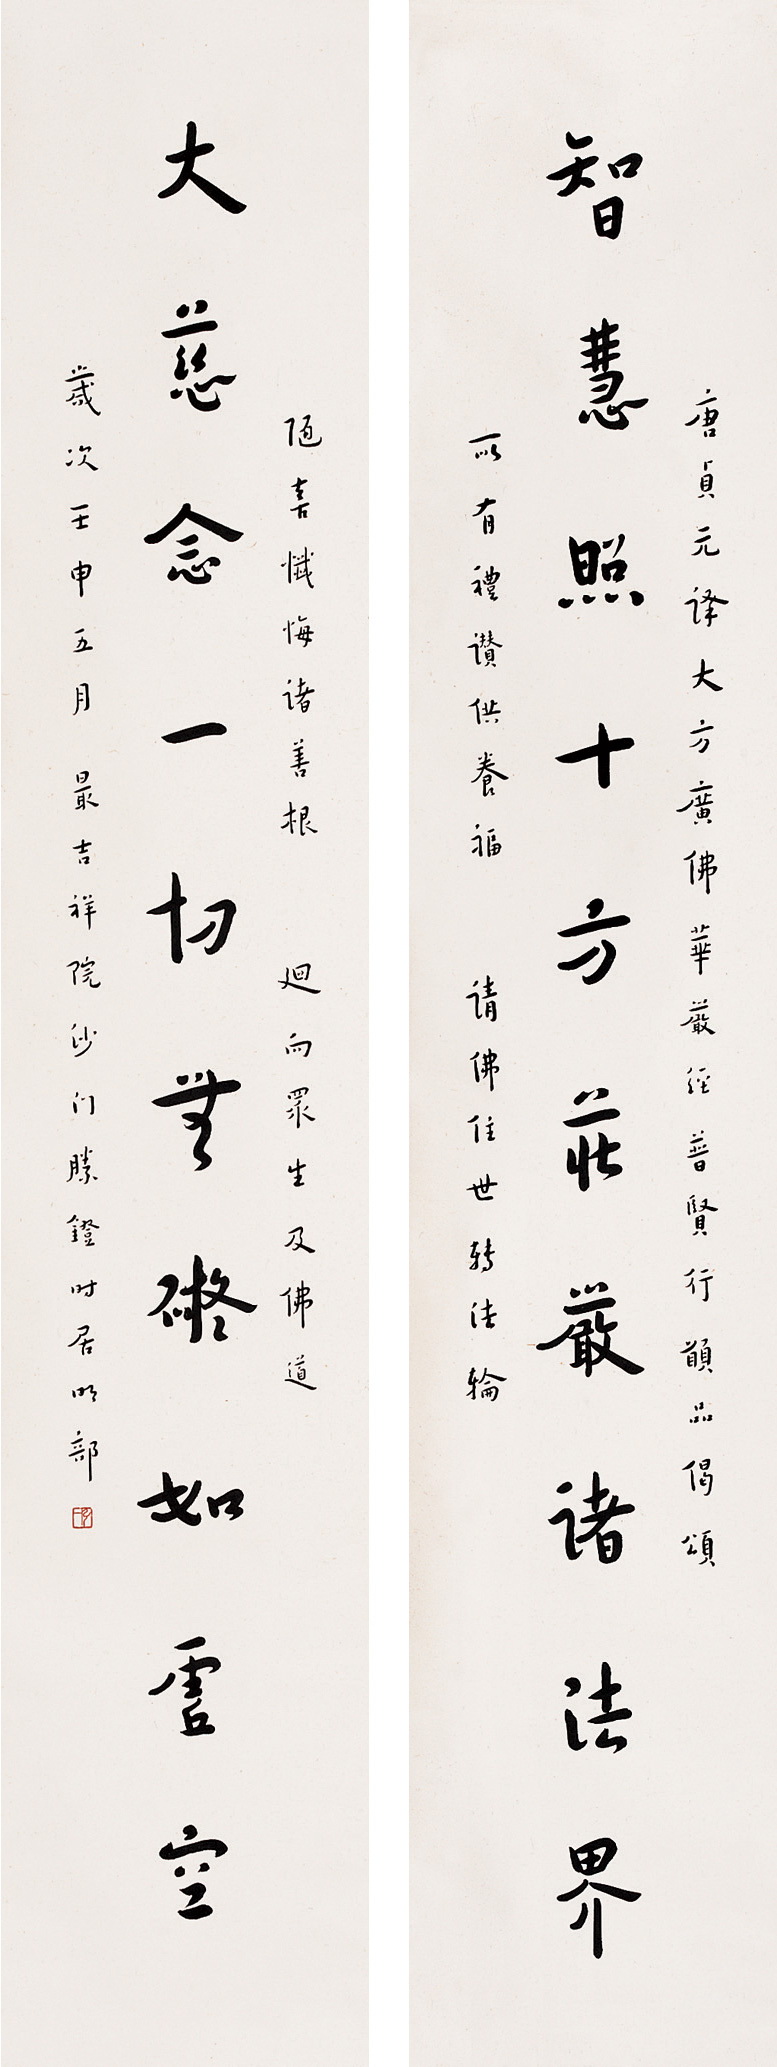 唐貞元译大方廣佛華嚴經普賢行願品偈頌
智慧照十方莊嚴诸法界
所有禮讃供養福 请佛住世轉法輪
随喜懺悔诸善根 迴向眾生及佛道
大慈念一切無礙如虛空
歲次壬申五月 最吉祥院沙门勝鐙时居